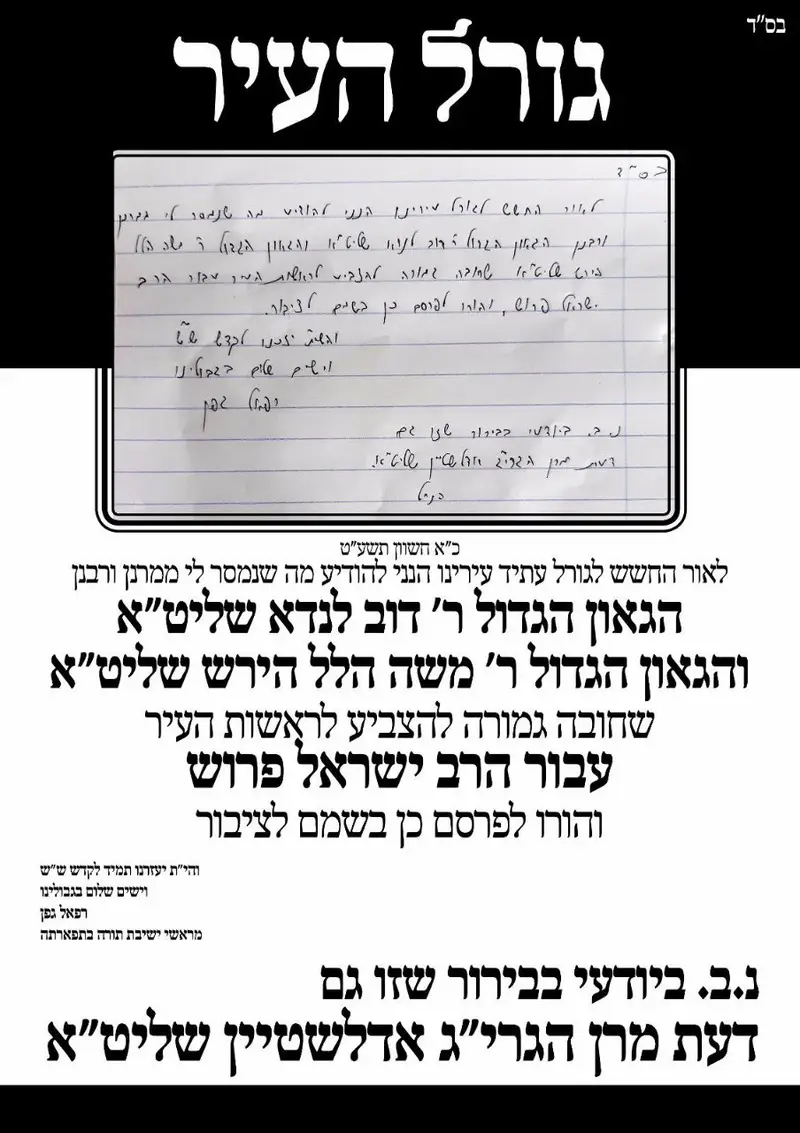 בס"ד
גורל העיר
בס"ד
לאור החשש לגורל עירינו הנני להודיע מה שנמסר לי ממרנן
ורבנן הגאון הגדול ר' דוב לנדא שליט"א והגאון הגדול ר' משה הלל
הירש שליט"א שחובה גמורה להצביע לראשות העיר עבור הרב
ישראל פרוש, והורו לפרסם כן בשמם לציבור.
והשי"ת יזכנו לקדש ש"ש
וישים שלום בגבולינו
רפאל גפן
נ.ב. ביודעי בבירור שזו גם
דעת מרן הגרי"ג אדלשטיין שליט"א.
הנ"ל
כ"א חשוון תשע"ט
לאור החשש לגורל עתיד עירינו הנני להודיע מה שנמסר לי ממרנן ורבנן
הגאון הגדול ר' דוב לנדא שליט"א
והגאון הגדול ר' משה הלל הירש שליט"א
שחובה גמורה להצביע לראשות העיר
עבור הרב ישראל פרוש
והורו לפרסם כן בשמם לציבור
והי"ת יעזרנו תמיד לקדש ש"ש
וישים שלום בגבולינו
רפאל גפן
מראשי ישיבת תורה בתפארתה
נ.ב. ביודעי בבירור שזו גם
דעת מרן הגרי"ג אדלשטיין שליט"א